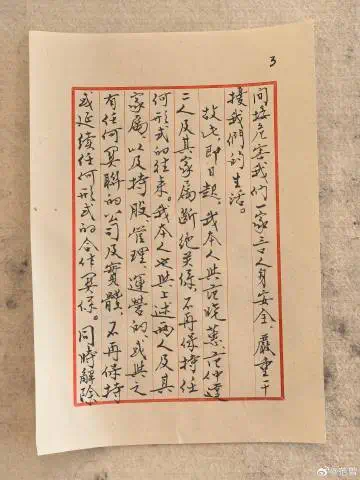 3
间接危害我们一家三口人身安全、嚴重干
擾我們的生活。
故此,即日起,我本人與范晓蕙、范仲達
二人及其家属断绝关係,不再保持任
何形式的往来。我本人也與上述兩人及其
家属、以及持股、管理、運營的或與之
有任何関聯的公司及實體,不再保持
或延續任何形式的合作関係。同時解除
@范曾